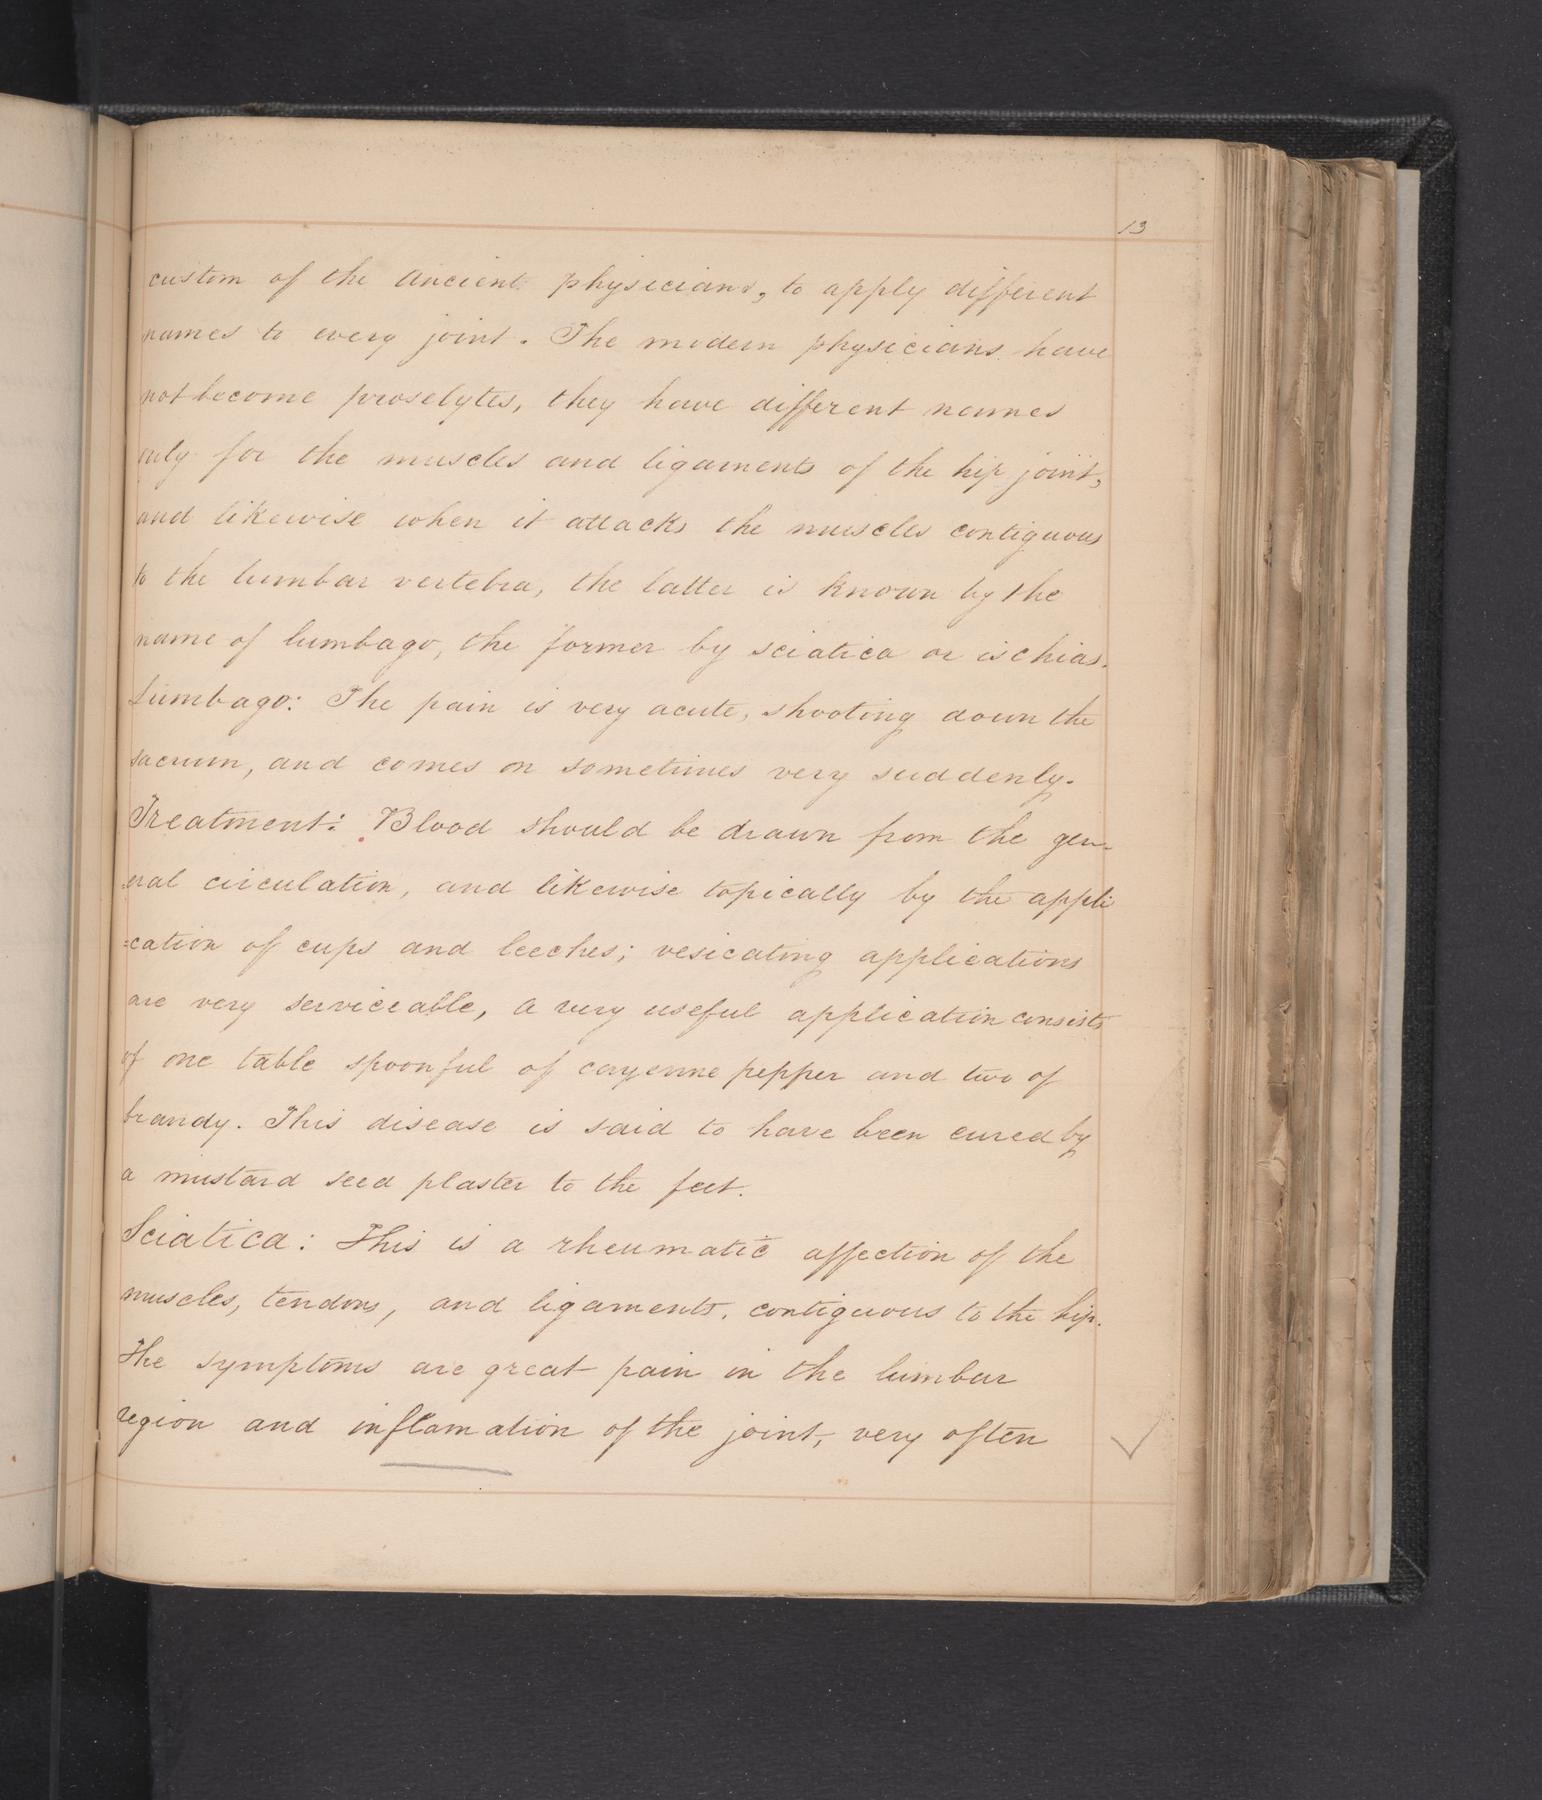 13
custom of the Ancient physicians, to apply different
names to every joint. The modern physicians have
not become proselytes, they have different names
only for the muscles and ligaments of the hip joint,
and likewise when it attacks the muscles contiguous
to the lumbar vertebra, the latter is known by the
name of lumbago, the former by sciatica or ischias.
Lumbago: The pain is very acute, shooting down the
sacrum, and comes on sometimes very suddenly.
Treatment: Blood should be drawn from the gen-
eral circulation, and likewise topically by the appli
=cation of cups and leeches; vesicating applications
are very serviceable, a very useful application consists
of one table spoonful of cayenne pepper and two of
brandy. This disease is said to have been cured by
a mustard seed plaster to the feet.
Sciatica: This is a rheumatic affection of the
muscles, tendons, and ligaments, contiguous to the hip.
The symptoms are great pain in the lumbar
region and inflamation of the joint, very often